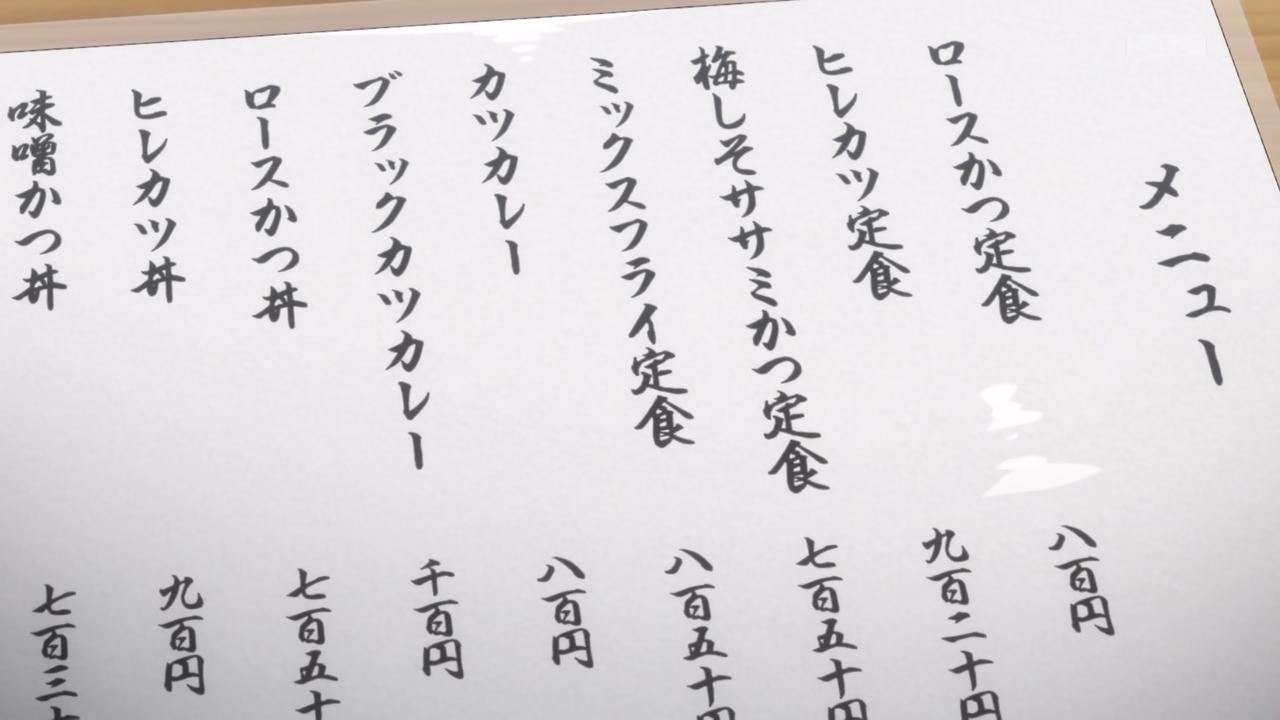 メニュー
ロースかつ定食 八百円
ヒレカツ定食 九百二十円
梅しそササミかつ定食 七百五十円
ミックスフライ定食 八百五十円
カツカレー 八百円
ブラックカツカレー 千百円
ロースかつ丼 七百五十
ヒレカツ丼 九百円
味噌かつ丼 七百三十